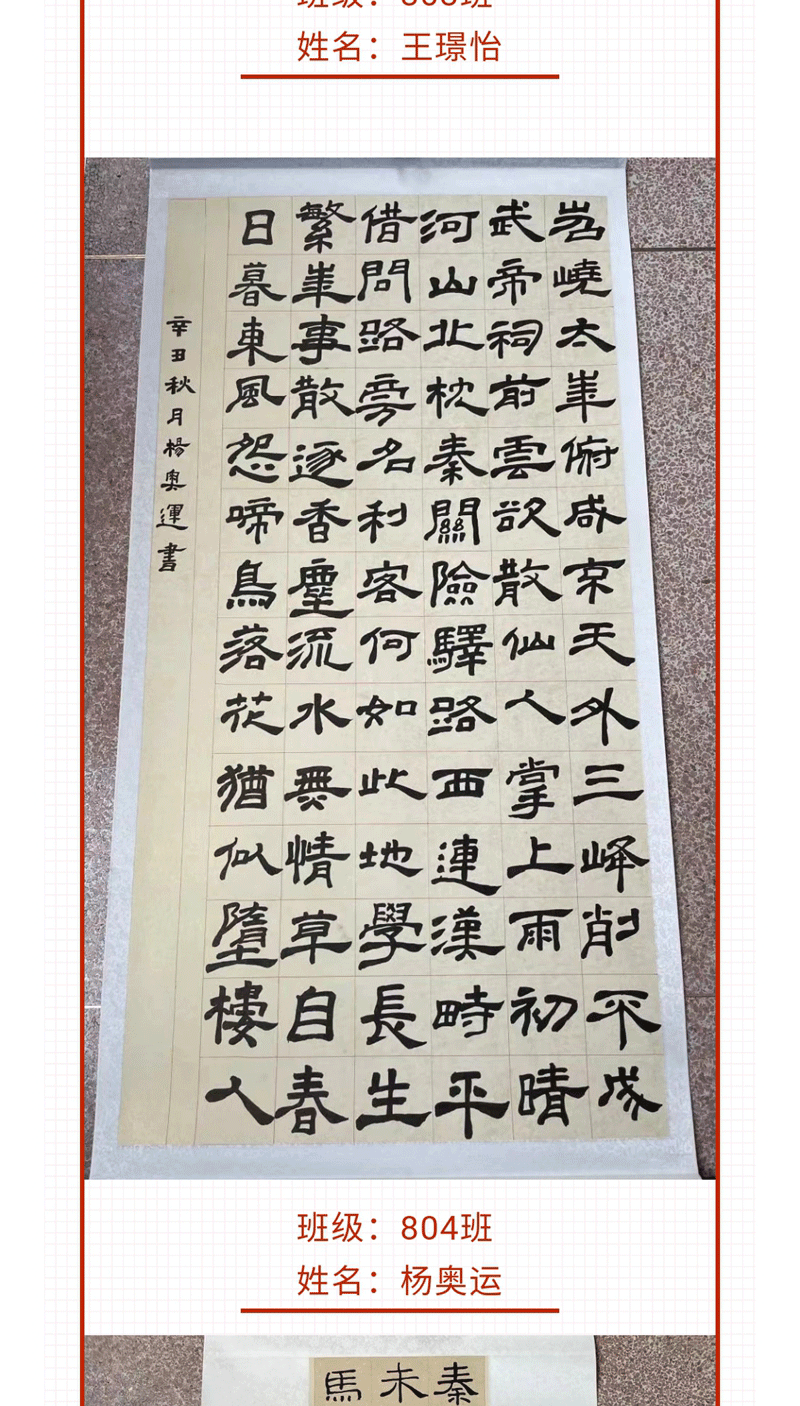 姓名：王璟怡
岧嶢太華俯咸京天外三峰削不成
武帝祠前雲欲散仙人掌上雨初晴
河山北枕秦關險驛路西連漢畤平
借問路旁名利客何如此地學長生
繁華事散逐香塵流水無情草自春
日暮東風怨啼鳥落花猶似墮樓人
辛丑秋月楊奧運書
班级：804班
姓名：杨奥运
秦
未
馬